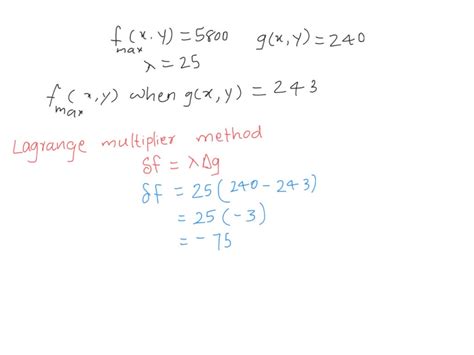 f(x,y) = 5800 g(x,y) = 240
max
λ = 25
f(x,y) when g(x,y) = 243
max
Lagrange multiplier method
δf = λΔg
δf = 25(240-243)
= 25(-3)
= - 75